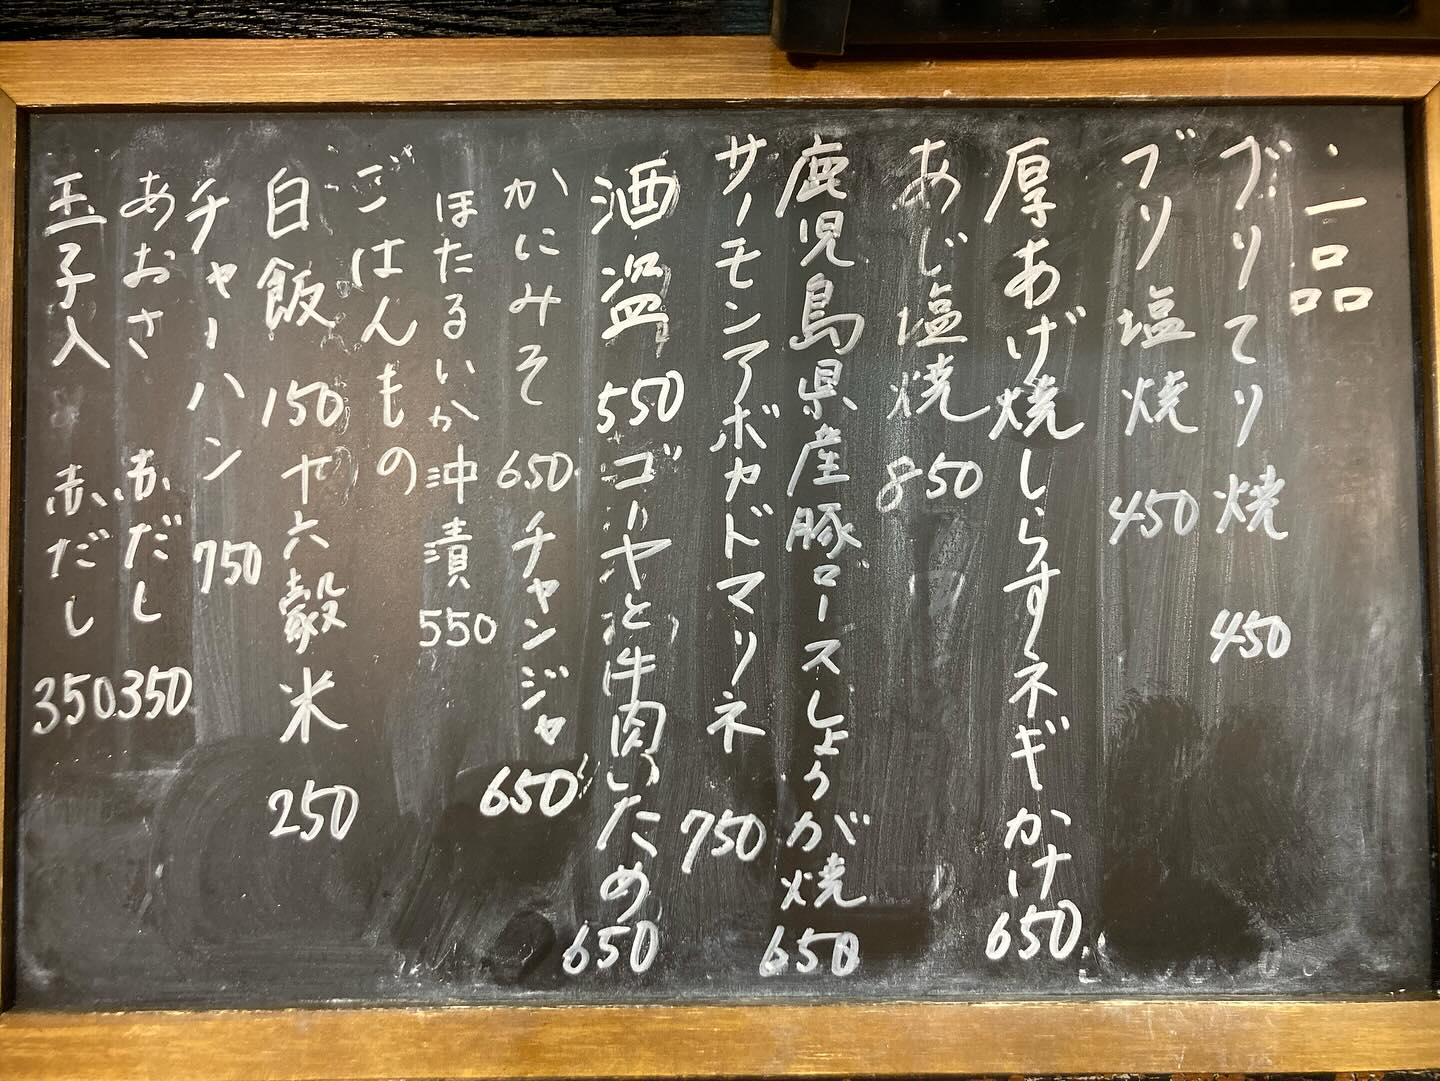 ・一品
ブリてり焼 450
ブリ塩焼 450
厚あげ焼しらすネギかけ 650
あじ塩焼 850
鹿児島県産豚ロースしょうが焼 650
サーモンアボカドマリネ 750
酒盗 550 ゴーヤと牛肉いため 650
かにみそ 650 チャンジャ 650
ほたるいか沖漬 550
ごはんもの
白飯 150 十六穀米 250
チャーハン 750
あおさ 赤だし 350
玉子入 赤だし 350